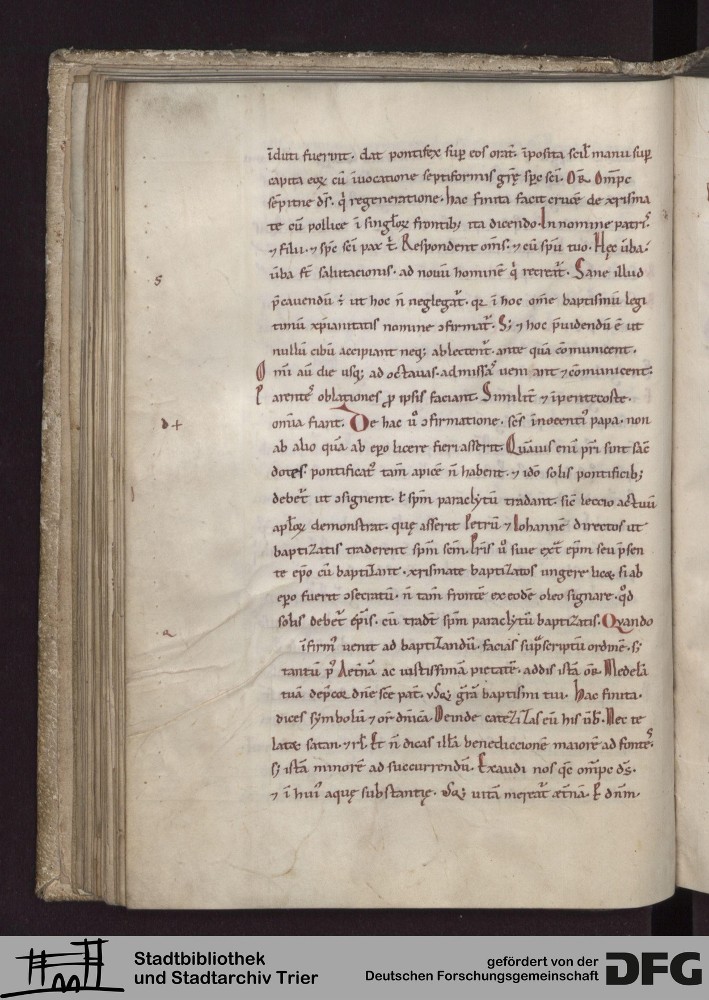 īduti fuerint. dat pontifex sup eos orat. īposita scil manu sup
capita eoꝝ cū īuocatione septiformis grę spc sci. Or. Omps
sēpitne ds. q̇ regeneratione. hac finita facit crucē de xrisma
te cū pollice ī singloꝝ frontib; ita dicendo. In nomine patris
⁊ filii. ⁊ spc sci pax t̄. Respondent oms. ⁊ cū spu tuo. Hęc ūba.
ūba st̄ salutacionis. ad nouū hominē q̇ recreat̄. Sane illud
s
p̄cauendū ē ut hoc n̄ neglegat̄. qr ī hoc ome baptismū legi
timū xp̄ianitatis nomine ꝯfirmat̄. S; ⁊ hoc p̄uidendū ē ut
nullū cibū accipiant neq; ablectent̄. ante quā cōmunicent.
Omi aū die usq; ad octauas. ad missā ueniant ⁊ cōmunicent.
Parentes oblationes ꝓ ipsis faciant. Similit̄ ⁊ ī pentecoste.
omīa fiant. De hac u̇ ꝯfirmatione. scs īnocenti papa. non
d+
ab alio quā ab epo licere fieri asserit. Quāuis enī pri sint sac̄
dotes. pontificat̄ tam apicē n̄ habent. ⁊ idō solis pontificib;
debet̄ ut ꝯsignent. ł spm paraclytū tradant. sic̄ leccio actuū
aploꝝ demonstrat. quę asserit Petrū ⁊ Iohannē directos ut
baptizatis traderent spm scm. Pris u̇ siue ext̄ epm seu p̄sen
te epo cū baptizant. xrismate baptizatos ungere licet. si ab
epo fuerit ꝯsecratū. n̄ tam frontē ex eodē oleo signare. qd
solis debet̄ epis. cū tradt̄ spm paraclytū baptizatis. Quando
a
īfirmus uenit ad baptizandū. facias sup̄scriptū ordinē. s;
tantū p̄ Aetnā ac iustissimā pietatē. addis istā or. Medelā
tuā dep̄cor dne sce pat. usq; grām baptismi tui. hac finita.
dices symbolū ⁊ or dnicā. Deinde catezizas eū his ūb. Nec te
latet satan. ⁊ rl. Et n̄ dicas illā benediccionē maiorē ad fontes.
s; istā minorē ad succurrendū. Exaudi nos qs omps ds.
⁊ ī huius aquę substantię. usq; uitā mereat̄ ætnā. P dnm.
Stadtbibliothek
und Stadtarchiv Trier
gefördert von der
Deutschen Forschungsgemeinschaft
DFG